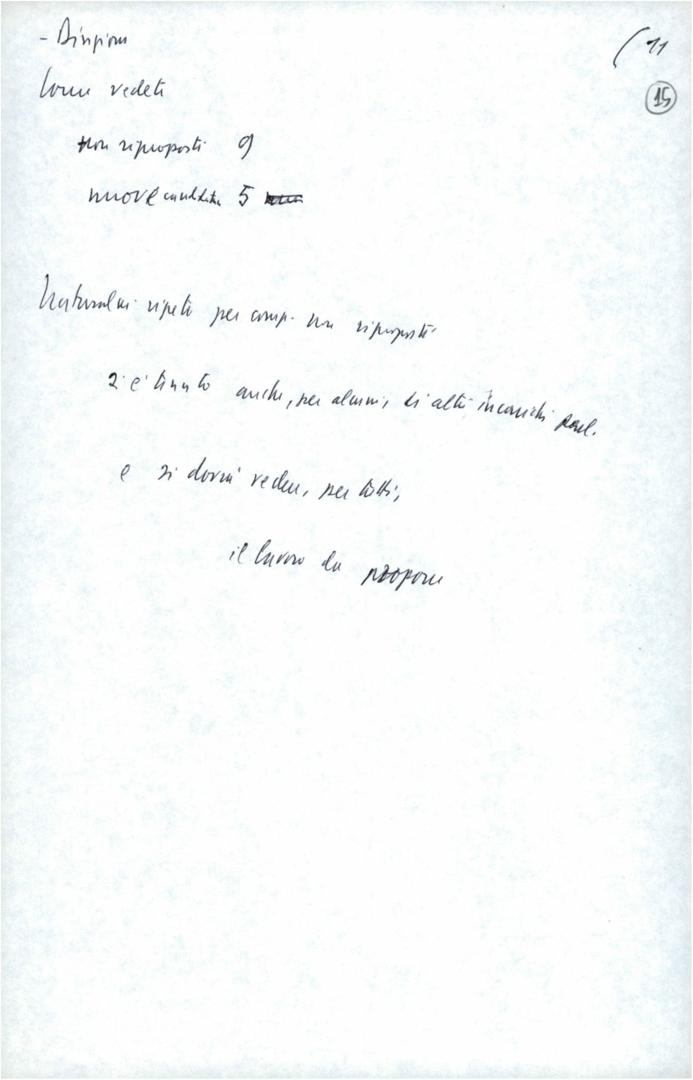 - Direzione
(11
15
Come vedete
non riproposti 9
nuove candidature 5
Naturalm. ripeto per comp. non riproposti
si è tenuto anche, per alcuni, di altri incarichi parl.
e si dovrà vedere, per tutti,
il lavoro da proporre